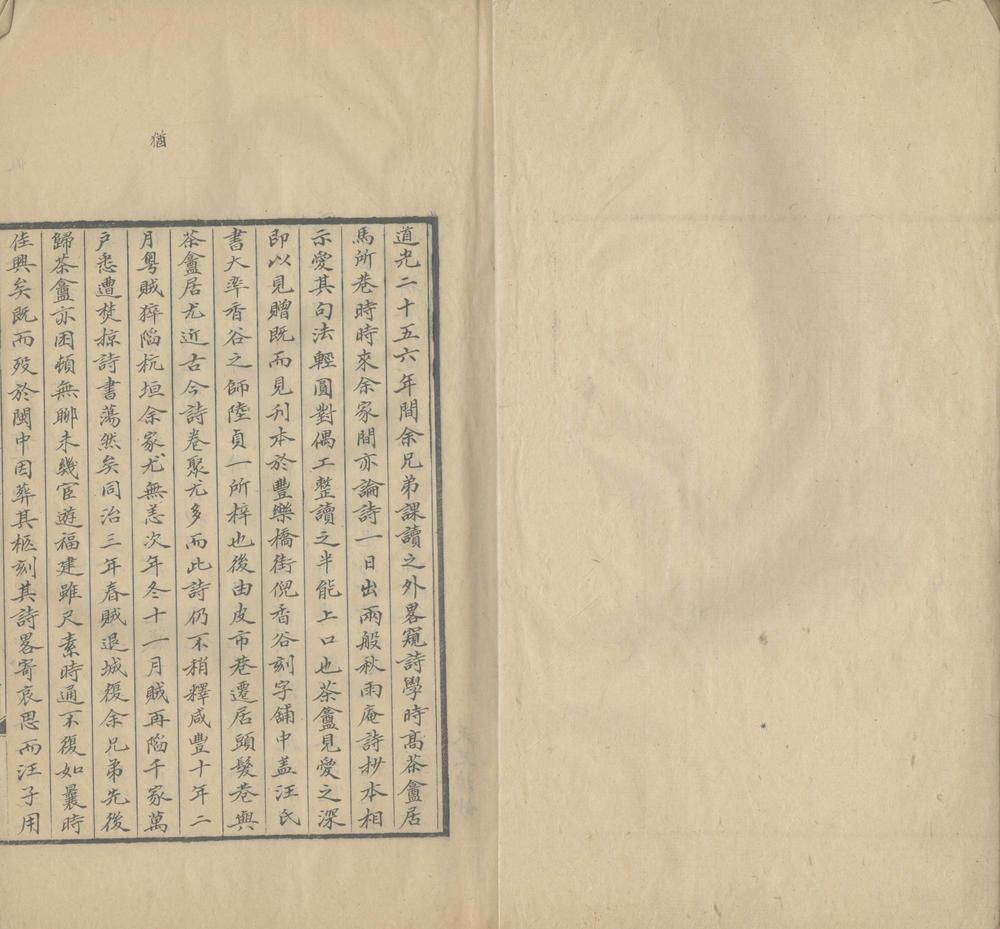 猶
道光二十五六年間余兄弟課讀之外畧窺詩學時高茶盦居
馬所巷時時來余家間亦論詩一日出兩般秋雨庵詩抄本相
示愛其句法輕圓對偶工整讀之半能上口也茶盦見愛之深
即以見贈既而見刋本於豐樂橋街倪香谷刻字舖中盖汪氏
書大率香谷之師陸貞一所梓也後由皮市巷遷居頭髮巷與
茶盦居尤近古今詩卷聚尤多而此詩仍不稍釋咸豐十年二
月粵賊猝陷杭垣余家尤無恙次年冬十一月賊再陷千家萬
户悉遭焚掠詩書蕩然矣同治三年春賊退城復余兄弟先後
歸茶盦亦困頓無聊未幾宦遊福建雖尺素時通不復如曩時
佳興矣既而歿於閩中因葬其柩刻其詩畧寄哀思而汪子用